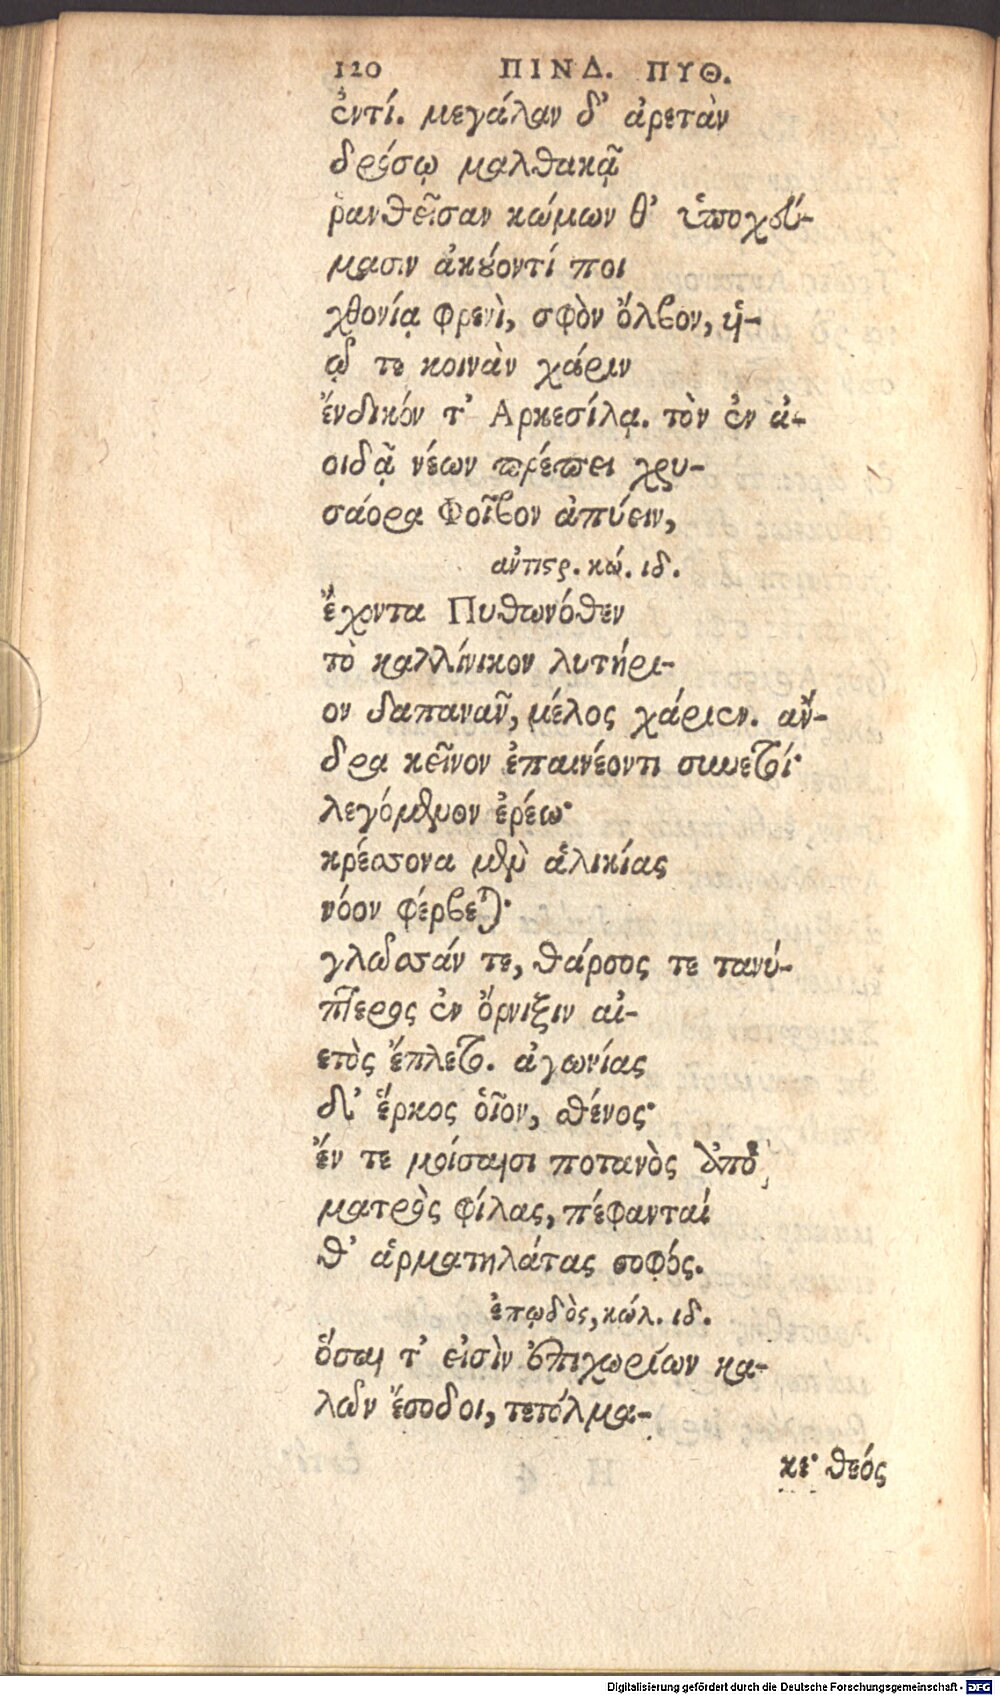 120 ΠΙΝΔ. ΠΥΘ.
ἐντί. μεγάλαν δ' ἀρετὰν
δρόσῳ μαλθακᾷ
ῥανθεῖσαν κώμων θ' ὑποχεύ-
μασιν ἀκούοντί ποι
χθονίᾳ φρενὶ, σφὸν ὄλβον, υἱ-
ῷ τε κοινὰν χάριν
ἔνδικόν τ' Αρκεσίλᾳ. τὸν ἐν ἀ-
οιδᾷ νέων πρέπει χρυ-
σάορα Φοῖβον ἀπύειν,
αντιστρ. κώ. ιδ.
ἔχοντα Πυθωνόθεν
τὸ καλλίνικον λυτήρι-
ον δαπανᾶν, μέλος χάριεν. ἄν-
δρα κεῖνον ἐπαινέοντι συνετοί·
λεγόμενον ἐρέω·
κρέσσονα μὲν ἁλικίας
νόον φέρβεται·
γλῶσσάν τε, θάρσος τε τανύ-
πτερος ἐν ὄρνιξιν αἰ-
ετὸς ἔπλετο. ἀγωνίας
δ' ἕρκος οἷον, σθένος·
ἔν τε μοίσαισι ποτανὸς ἀπὸ
ματρὸς φίλας, πέφανταί
θ' ἁρματηλάτας σοφός.
ἐπῳδὸς, κώλ. ιδ.
ὅσαι τ' εἰσὶν ἐπιχωρίων κα-
λῶν ἔσοδοι, τετόλμα-
κε· θεός
Digitalisierung gefördert durch die Deutsche Forschungsgemeinschaft - DFG